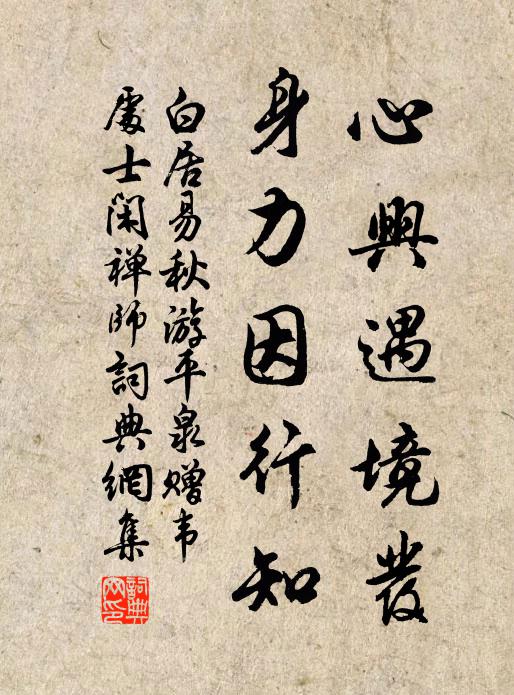 心興遇境發
身力因行知
白居易秋游平泉赠韦
處士閑禅師詞典網集